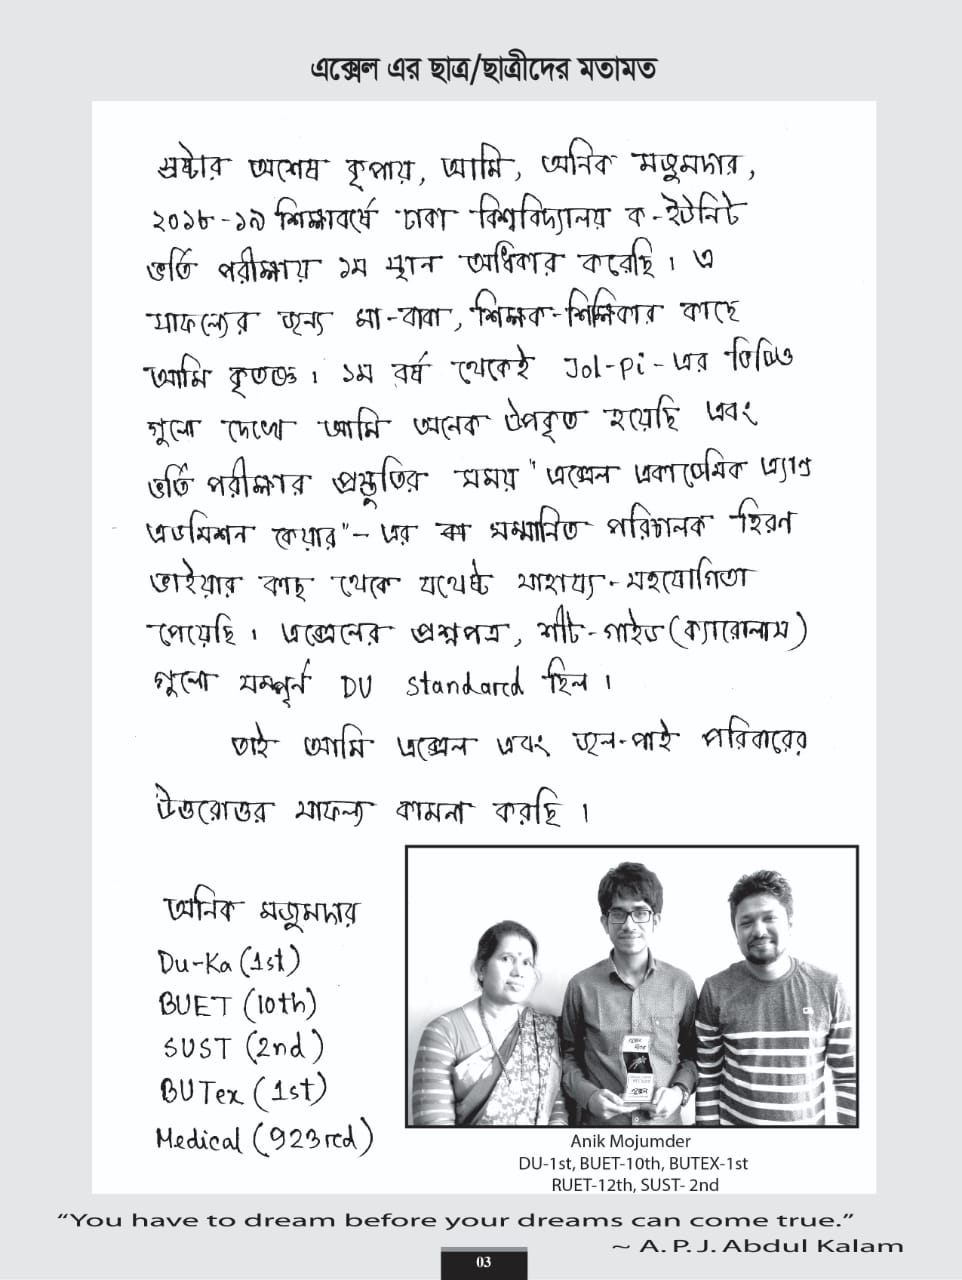 এক্সেল এর ছাত্র/ছাত্রীদের মতামত
স্রষ্টার অশেষ কৃপায়, আমি, অনিক মজুমদার,
২০১৮-১৯ শিক্ষাবর্ষে ঢাকা বিশ্ববিদ্যালয় ক-ইউনিট
ভর্তি পরীক্ষায় ১ম স্থান অধিকার করেছি। এ
সাফল্যের জন্য মা-বাবা, শিক্ষক-শিক্ষিকার কাছে
আমি কৃতজ্ঞ। ১ম বর্ষ থেকেই Jol-pi-এর ভিডিও
গুলো দেখে আমি অনেক উপকৃত হয়েছি এবং
ভর্তি পরীক্ষার প্রস্তুতির সময় "এক্সেল একাডেমিক এ্যান্ড
এডমিশন কেয়ার"-এর সম্মানিত পরিচালক হিরণ
ভাইয়ার কাছ থেকে যথেষ্ট সাহায্য-সহযোগিতা
পেয়েছি। এক্সেলের প্রশ্নপত্র, শীট-গাইড (ক্যারোলাস)
গুলো সম্পূর্ন DU standard ছিল।
তাই আমি এক্সেল এবং জল-পাই পরিবারের
উত্তরোত্তর সাফল্য কামনা করছি।
অনিক মজুমদার
Du-Ka (1st)
BUET (10th)
SUST (2nd)
BUTex (1st)
Medical (923rd)
Anik Mojumder
DU-1st, BUET-10th, BUTEX-1st
RUET-12th, SUST- 2nd
“You have to dream before your dreams can come true.”
~ A. P. J. Abdul Kalam
03